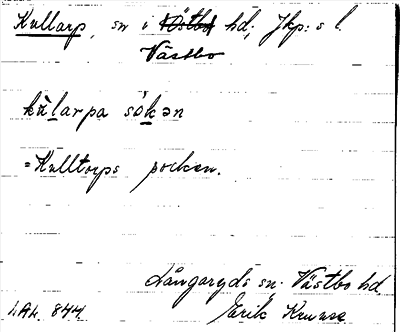 Kullarp, sn i Östbo hd; Jkp: s l.
Västbo
kùlarpa sòkən
= Kulltorps socken.
Långaryds sn. Västbo hd
1.Ah. 844. Erik Kruuse